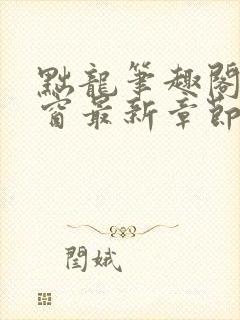 點龍筆趣閣
窗最新章節
閏娥